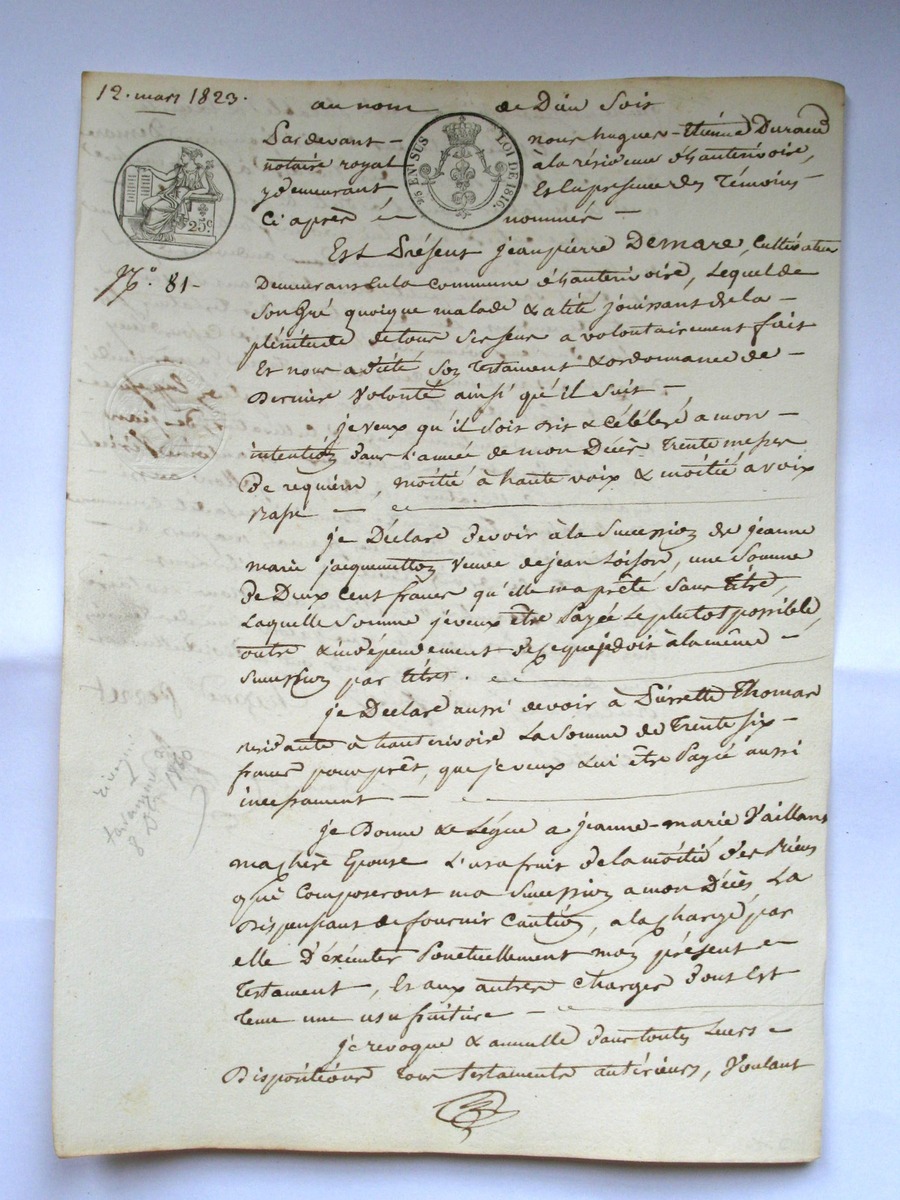 12. mars 1823.
au nom de Dieu Soit
Pardevant - nous hugues-Etienne Durand
notaire royal à la résidence d'hauterivoire,
y demeurant Et en la presence des Témoins -
Ci après nommés -
25c
95 EN SUS
LOI DE 1816.
N.º 81-
Est Présent jean pierre Demare, Cultivateur
Demeurant en la Commune d'hauterivoire, Lequel de
Son Gré quoique malade & alité jouissant de la -
plénitude de tous Ses Sens a volontairement fait
Et nous a dicté Son Testament & ordonnance de -
Derniere Volonté ainsi qu'il Suit -
je veux qu'il Soit dit & Célébré a mon -
intention dans L'année de mon Décès Trente messes
de requiem, moitié à haute voix & moitié a voix
Basse -
je Déclare devoir à la Succession de jeanne
marie jacquemetton Veuve de jean Loison, une Somme
de Deux Cent francs qu'elle m'a prêté Sans titre,
Laquelle Somme je veux être Payée Le plutot possible
outre & indépendement de ce que je dois à la même -
Succession par titres.
je Declare aussi devoir à Pierrette Thomas
residante à hauterivoire La Somme de Trente Six -
francs pour prêt, que je veux Lui être Payé aussi
incessament -
je Donne & Légue a jeanne-marie Vaillant
ma chère Epouse L'usufruit de la moitié des Biens
qui Composeront ma Succession a mon Décès, La
Dispensant de fournir Caution, a la Charge par
elle D'éxécuter Ponctuellement mon présent
Testament, Et aux autres Charges dont Est
Tenue une usufruitiere -
je revoque & annulle dans toutes Leurs
Dispositions tous testaments antérieurs, Voulant